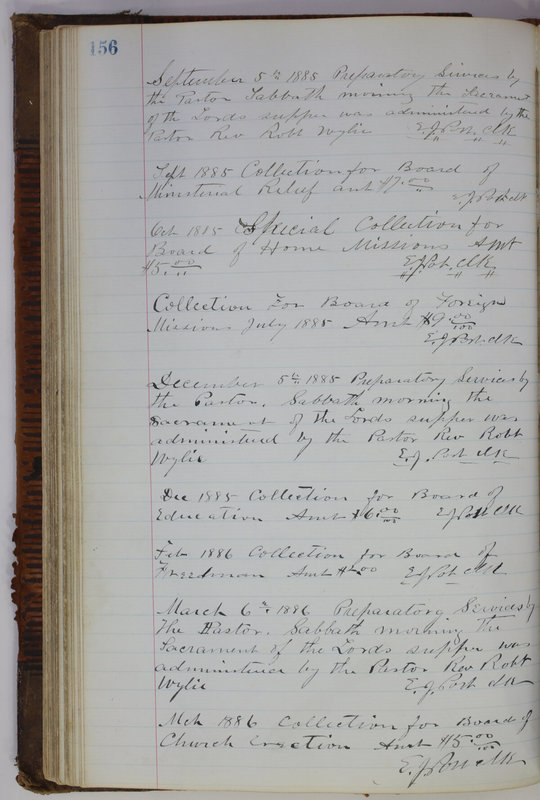 156
September 5th 1885 Preparatory Servises by
the Pastor Sabbath morning the Sacrament
of the Lords supper was administered by the
Pastor Rev Robt Wylie E. J. Post. Clk
Sept 1885 Collection for Board of
Ministerial Relief amt $7.00
E. J. Post clk
Oct 1885 Special Collection for
Board of Home Missions Amt
$5.00 E. J. Post. Clk.
Collection For Board of Foreign
Missions July 1885 Amt $9.00/00
E. J. Post. clk
December 5th 1885 Preparatory Services by
the Pastor. Sabbath morning the
Sacrament of the Lords supper was
administered by the Pastor Rev Robt
Wylie E. J. Post clk
Dec 1885 Collection for Board of
Education Amt $6.00/00 E J Post Clk
Feb 1886 Collection for Board of
Freedman Amt E J Post clk
March 6th 1886 Preparatory Services by
The Pastor. Sabbath morning the
Sacrament of the Lords supper was
administered by the Pastor Rev Robt
Wylie E. J. Post clk
Mch 1886 Collection for Board of
Church Erection Amt $5.00/00
E. J. Post clk